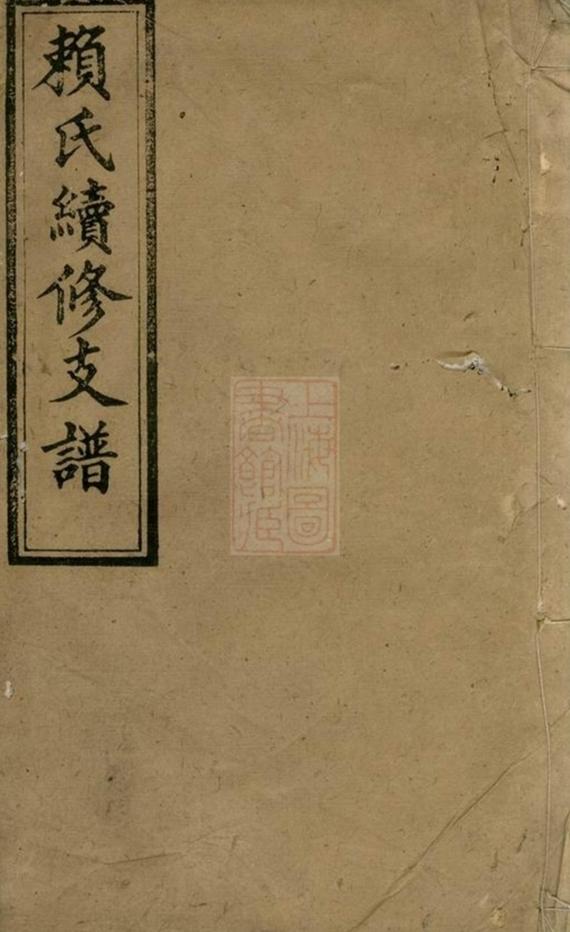 賴氏續修支譜
上海圖
書館藏